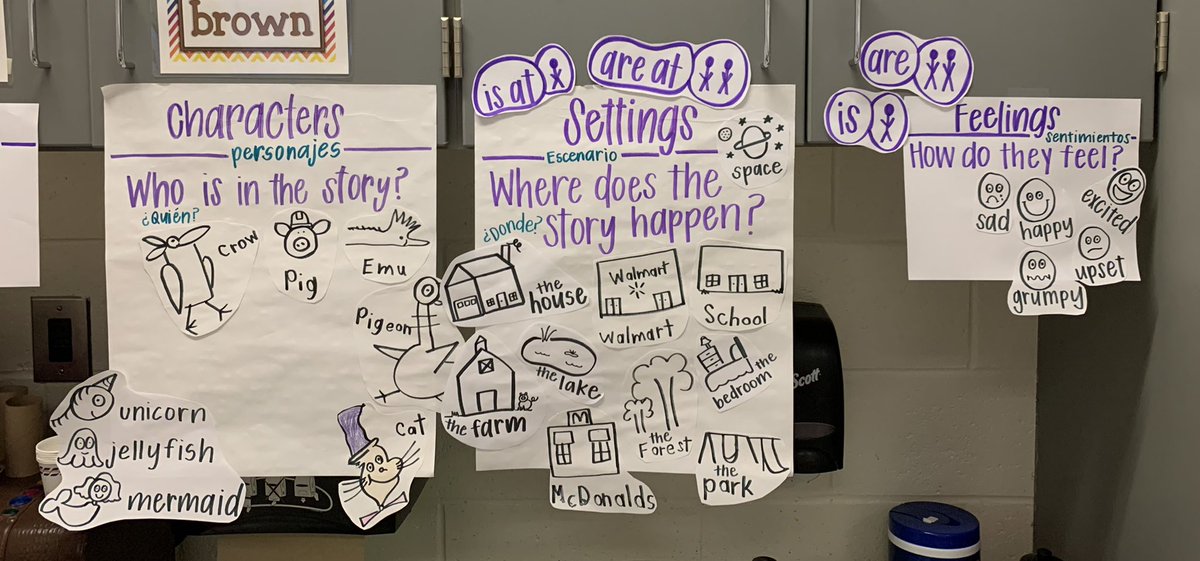 brown
Characters
personajes
Who is in the story?
¿Quién?
Crow
Pig
Emu
Pigeon
cat
unicorn
jellyfish
mermaid
is at
are at
Settings
Escenario
space
Where does the
¿Donde?
story happen?
the
house
Walmart
Walmart
School
the
farm
the lake
the
Forest
the
bedroom
M
McDonalds
the
park
Scott
is
are
Feelings
sentimientos-
How do they feel?
sad
happy
excited
upset
grumpy